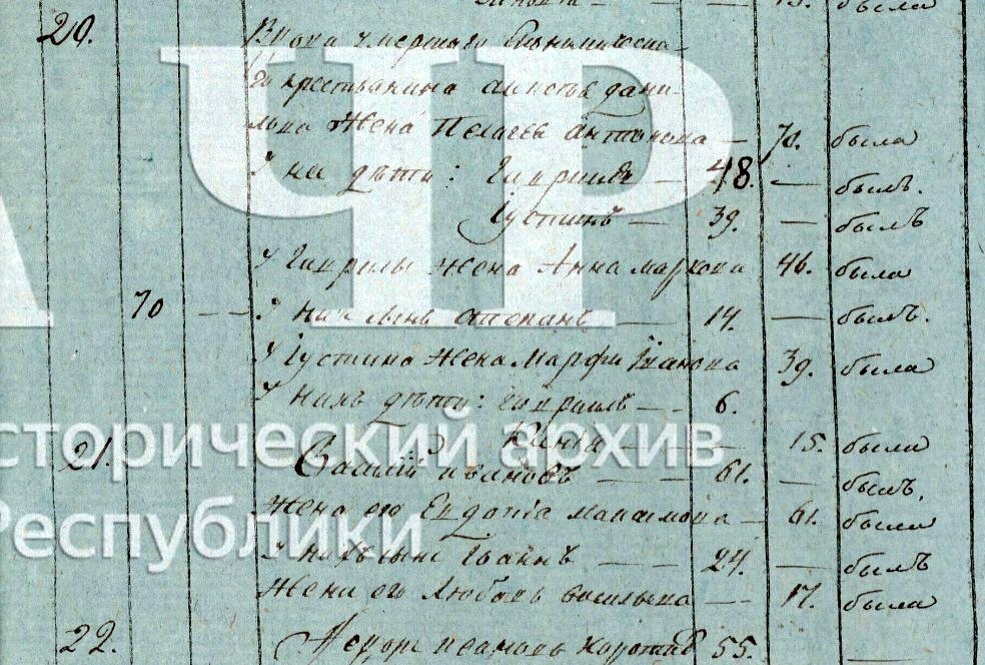 20. Вдова умершаго
крестьянина дани-
лова жена Пелагея антонова — 70. была
У нее дѣти: Гавриилъ — 48. — былъ.
Густинъ — 39. — былъ
У Гаврилы жена Анна маркова 46. была
70 — — У них сынъ степанъ — 14. — былъ.
У Густина жена Марфа Иванова 39. была
У нихъ дѣти: Гавриилъ — 6.
— 15. была
21. Василий ивановъ — — 61. — былъ.
Жена его Евдокия максимова — 61. была
У нихъ сынъ Иванъ — — 24. — былъ
Жена его Любовь васильева — 17. была
22. Федоръ ивановъ 55. —
ЧР
сторический архив
Республики